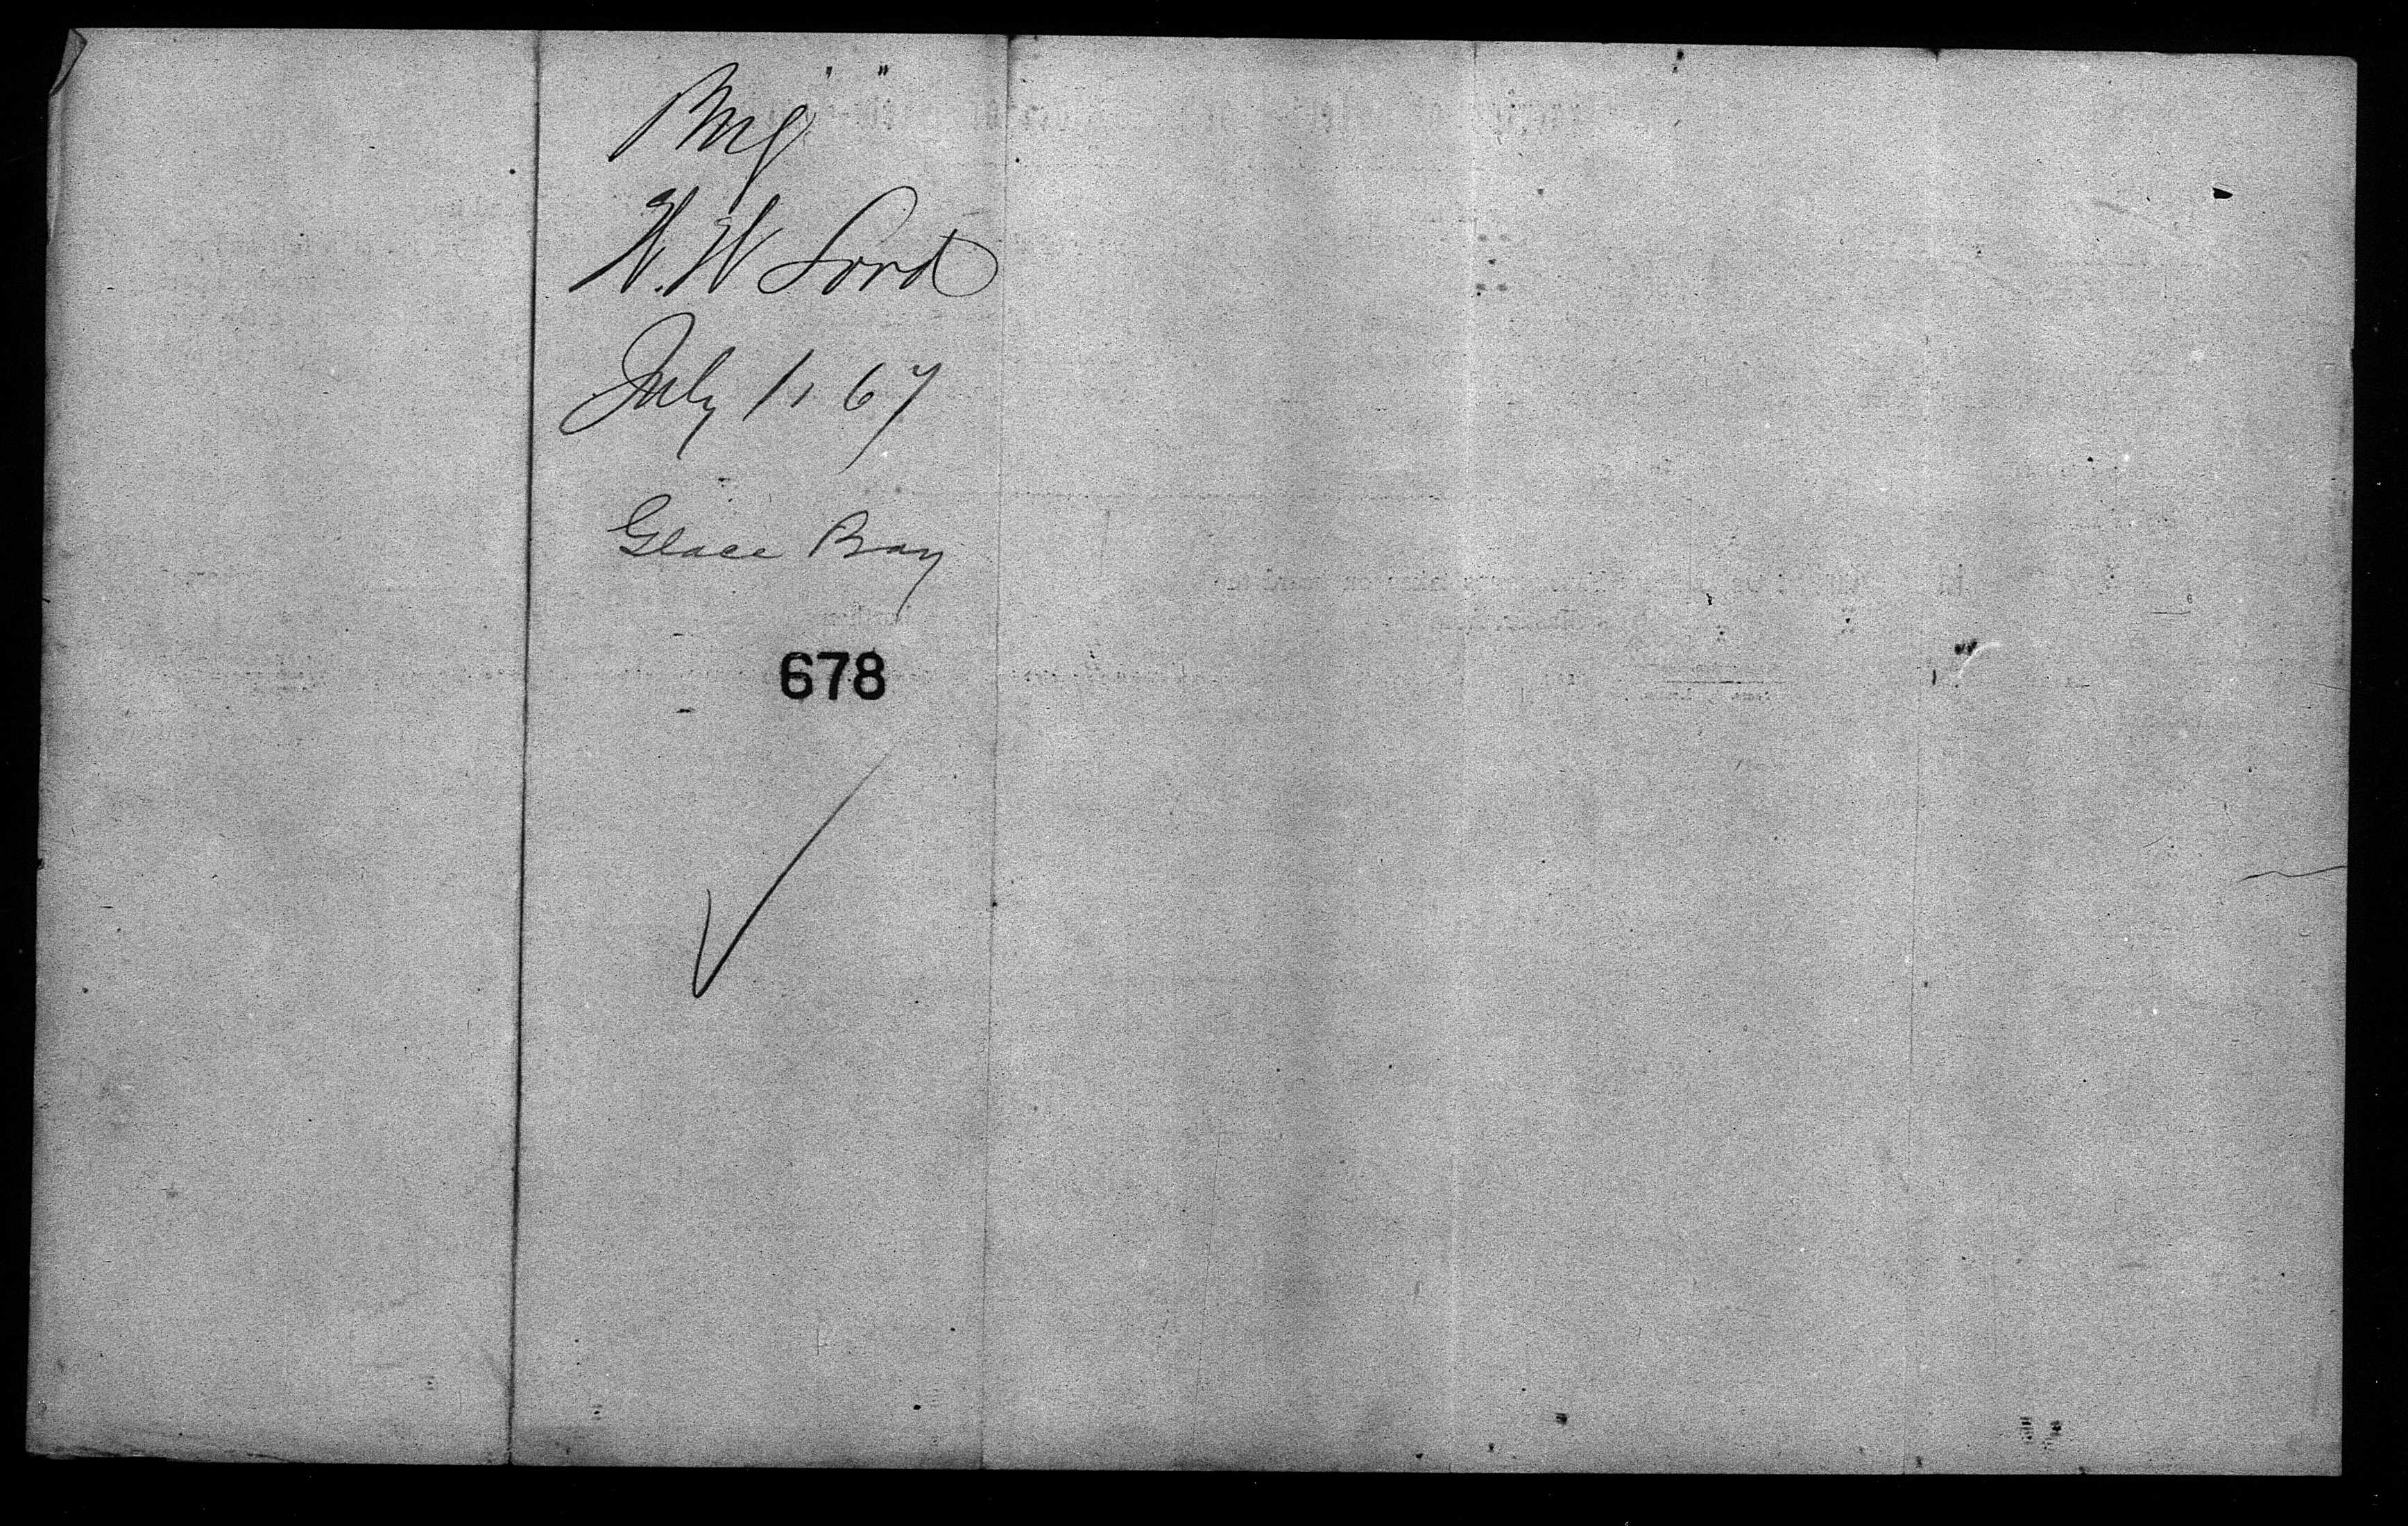 Brig " "
H. W Lord
July 1, 67
Glace Bay
678